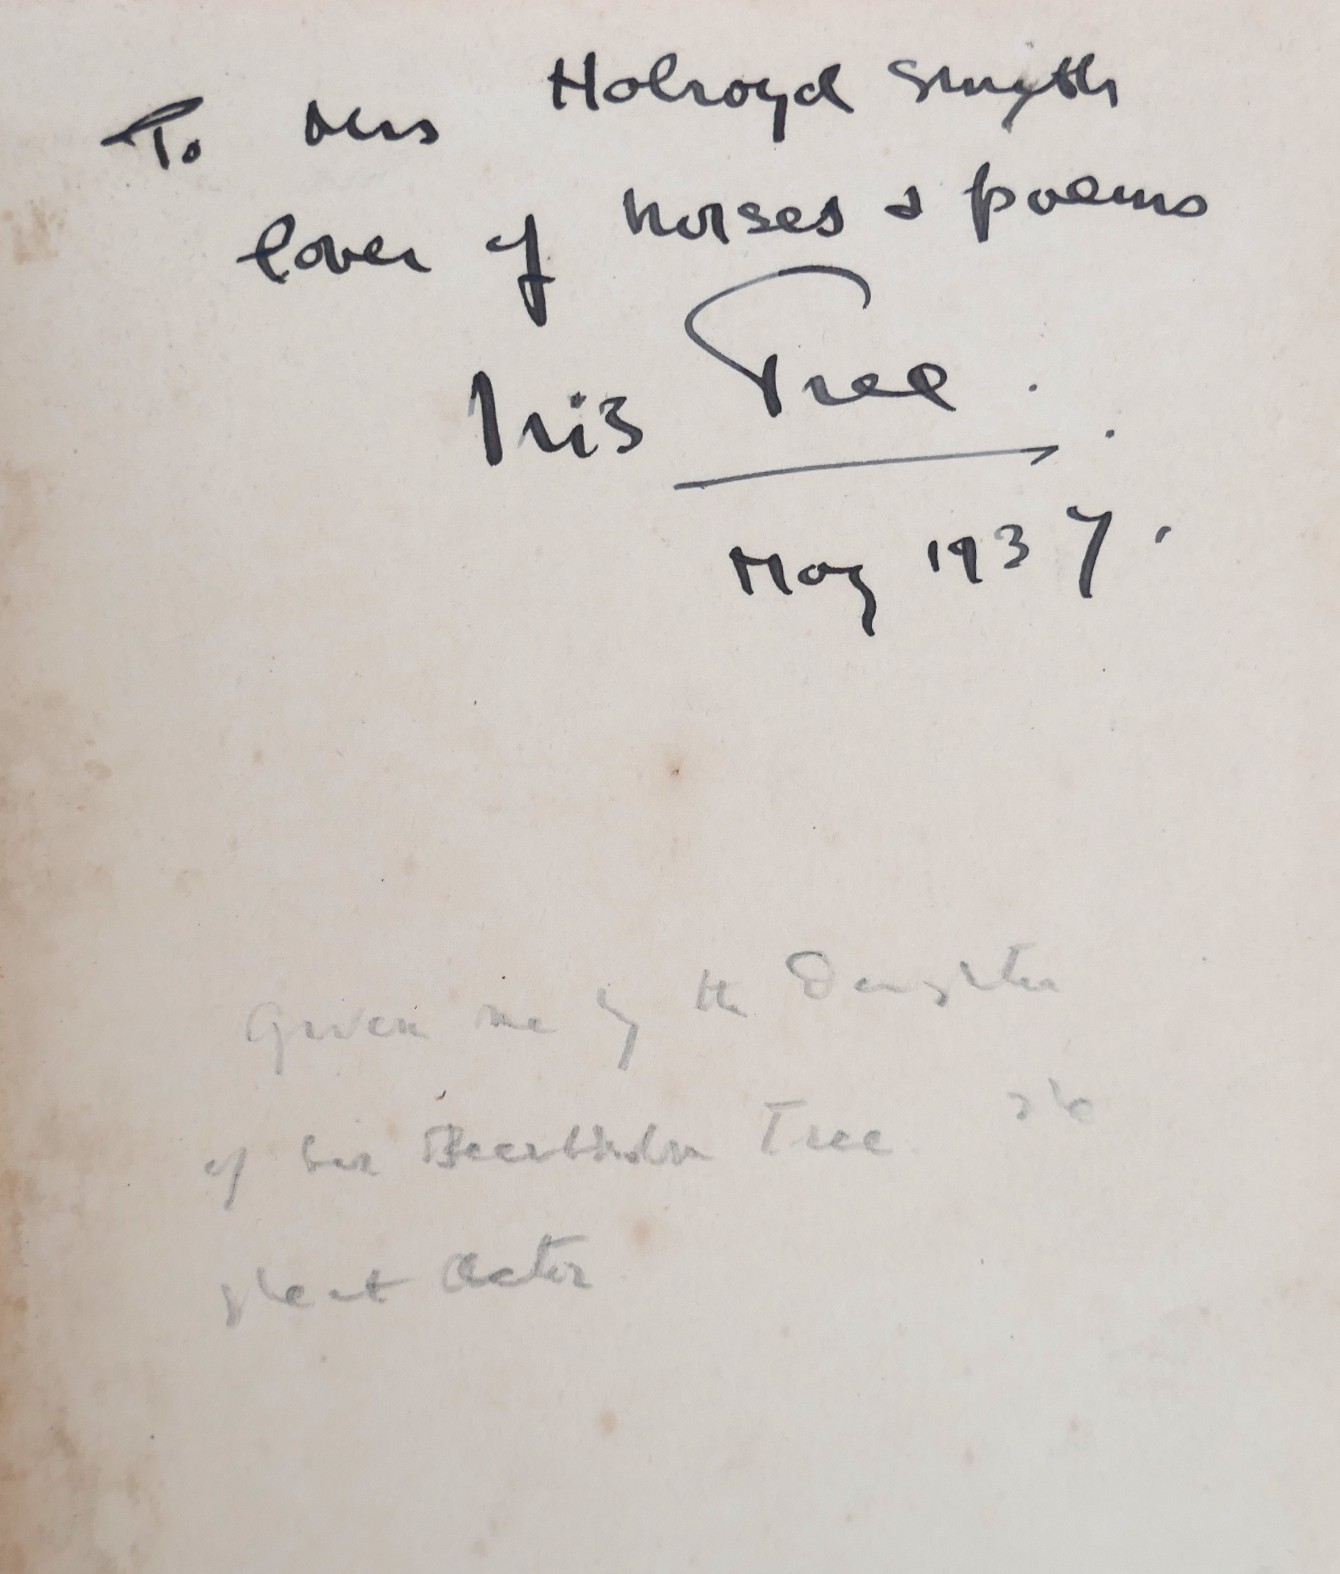 To Mrs Holroyd Smyth
lover of horses & poems
Iris Tree.
May 1937.
Given me by the Daughter
of Sir Beerbohm Tree the
great Actor